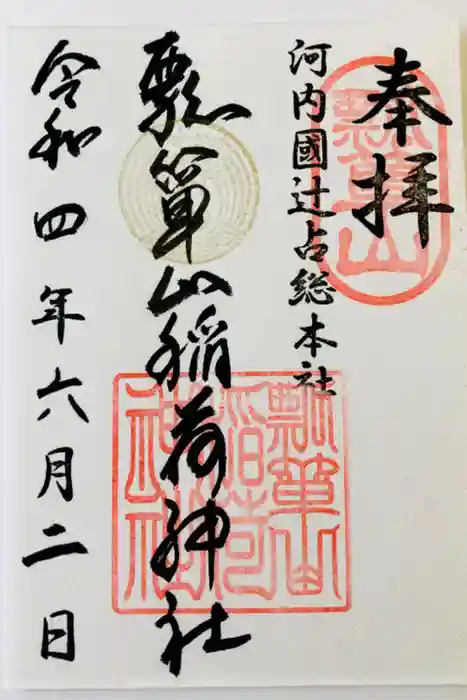 奉拝
河内國辻占総本社
瓢簞山稲荷神社
令和四年六月二日
瓢簞山
瓢簞山稲荷神社